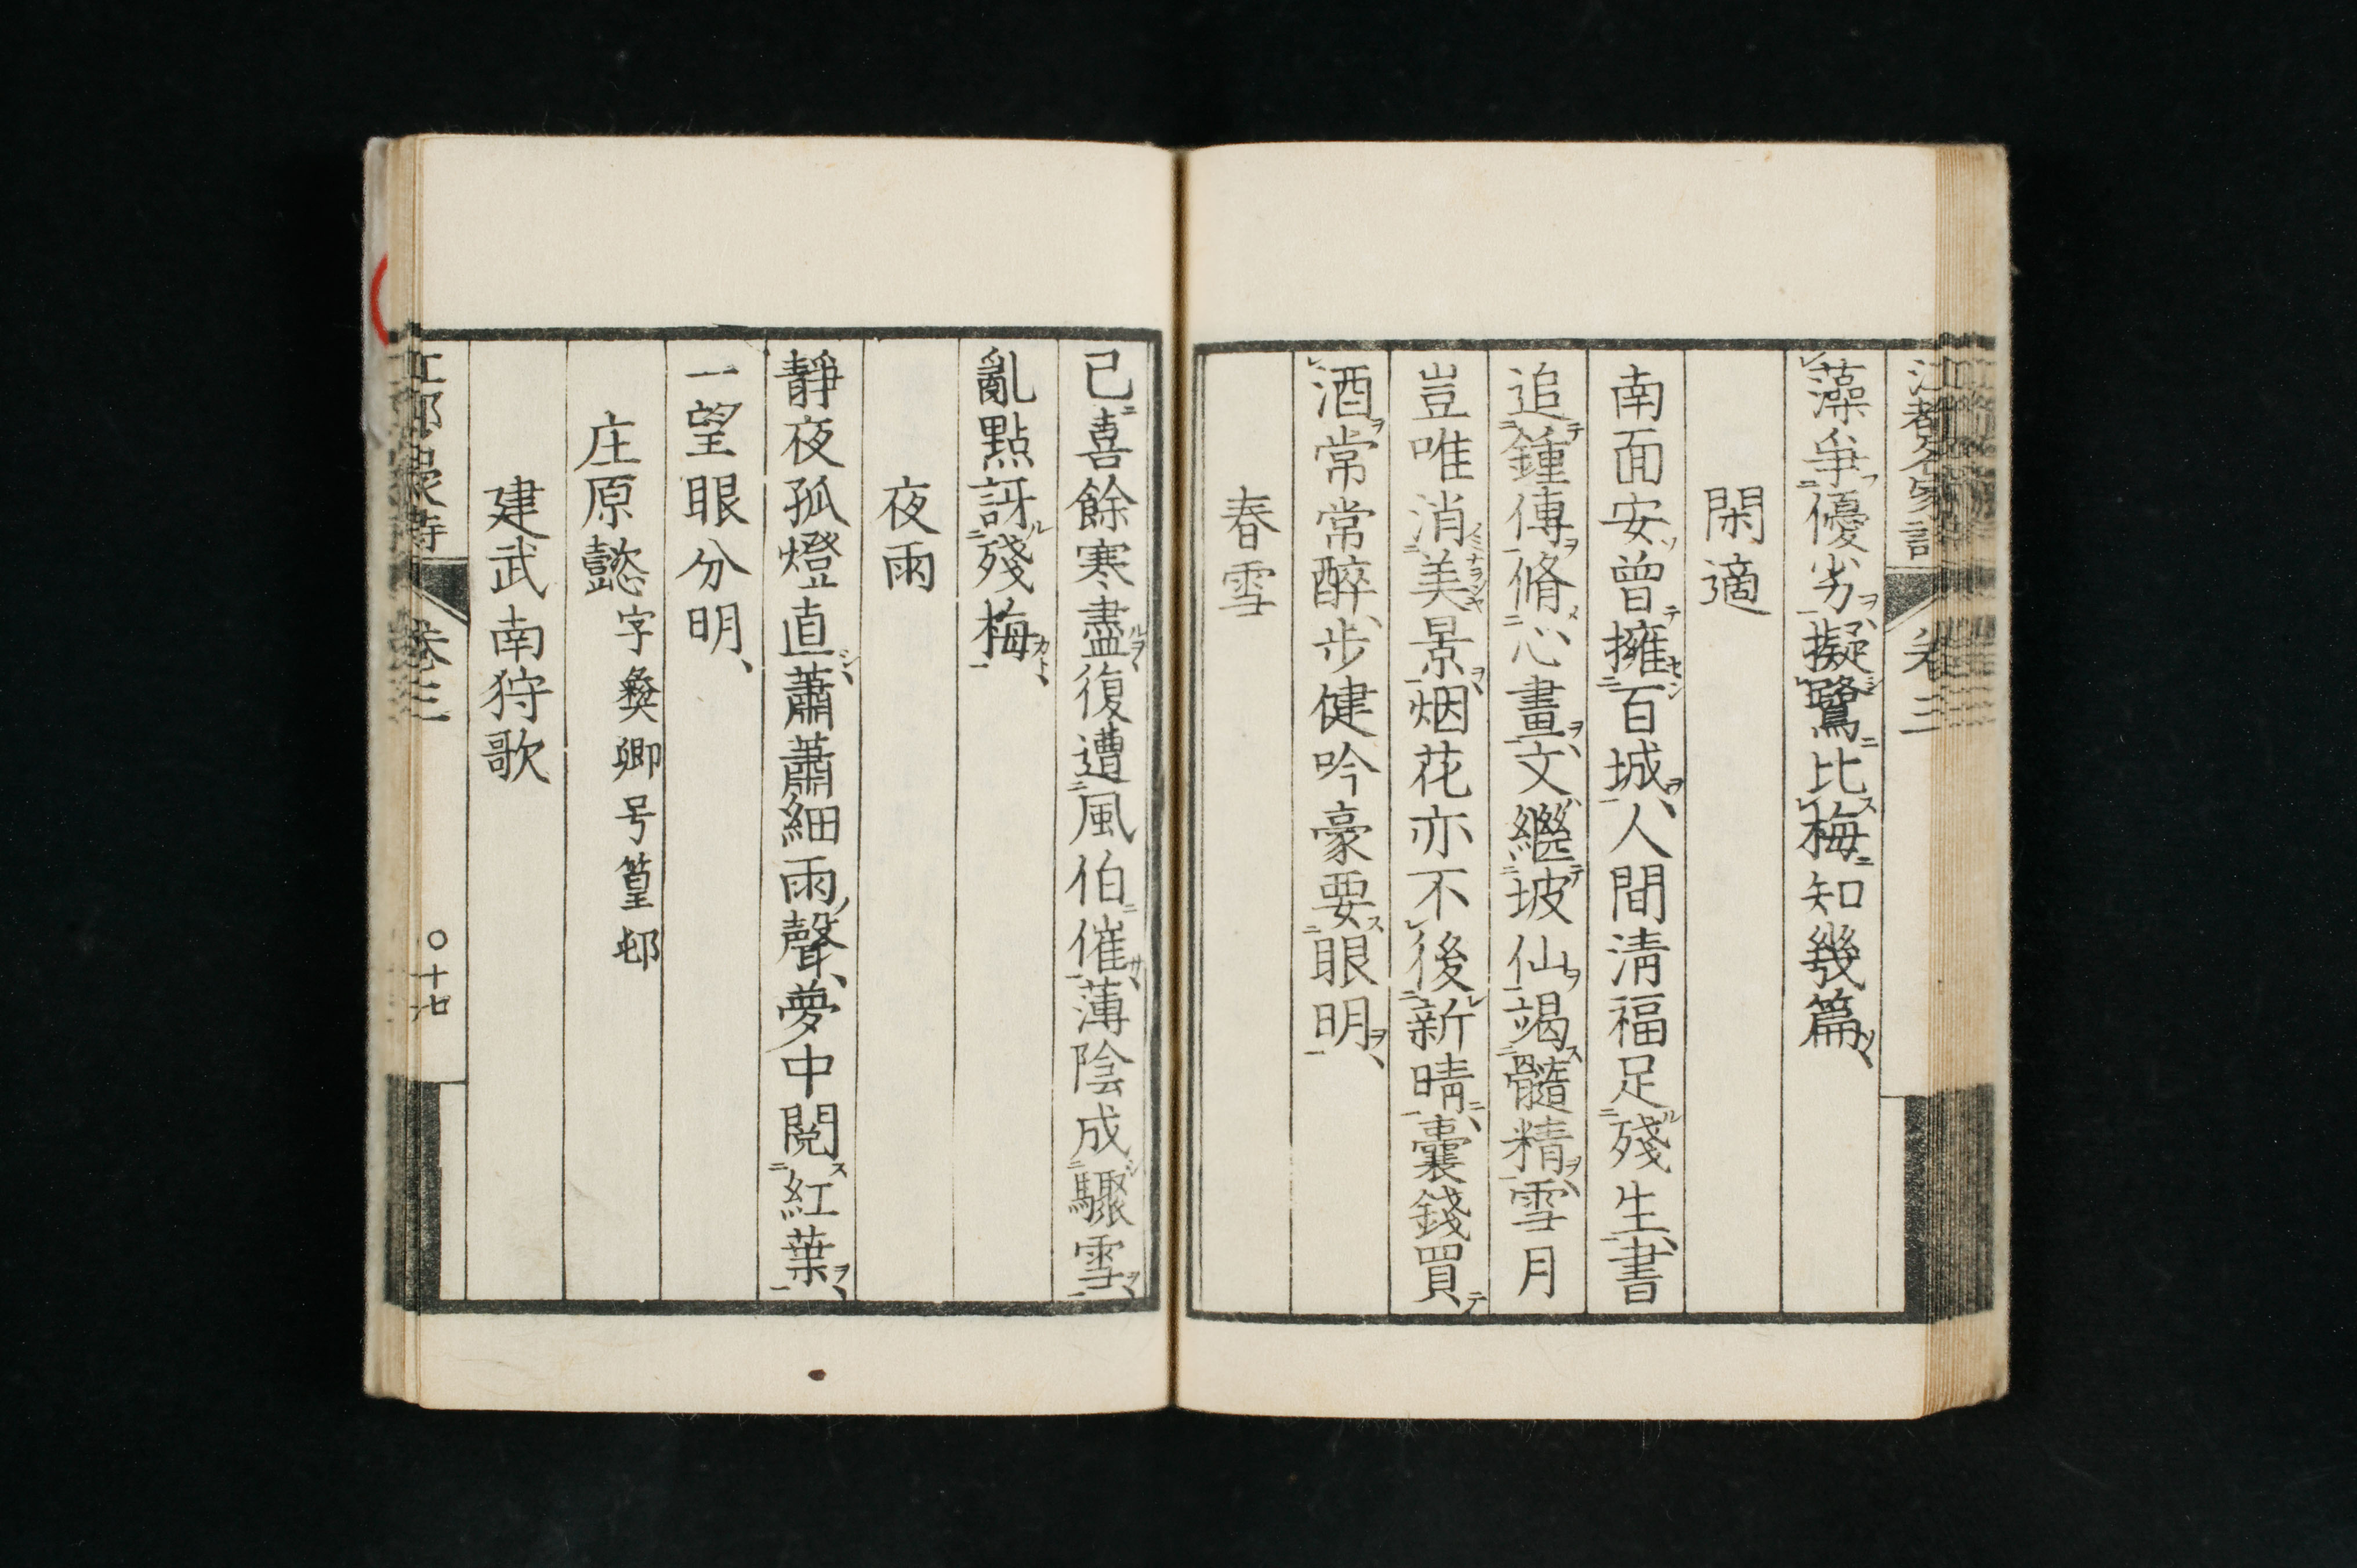 藻爭優劣擬鷺比梅知幾篇
閑適
南面安曾擁百城人間淸福足殘生書
追鍾傳脩心畫文繼坡仙竭髓精雪月
豈唯消美景烟花亦不後新晴囊錢買
酒常常醉步健吟豪要眼明
春雪
已喜餘寒盡復遭風伯催薄陰成驟雪
亂點訝殘梅
夜雨
靜夜孤燈直蕭蕭細雨聲夢中閱紅葉
一望眼分明
庄原懿字彜卿号篁邨
建武南狩歌
卷三
〇十七